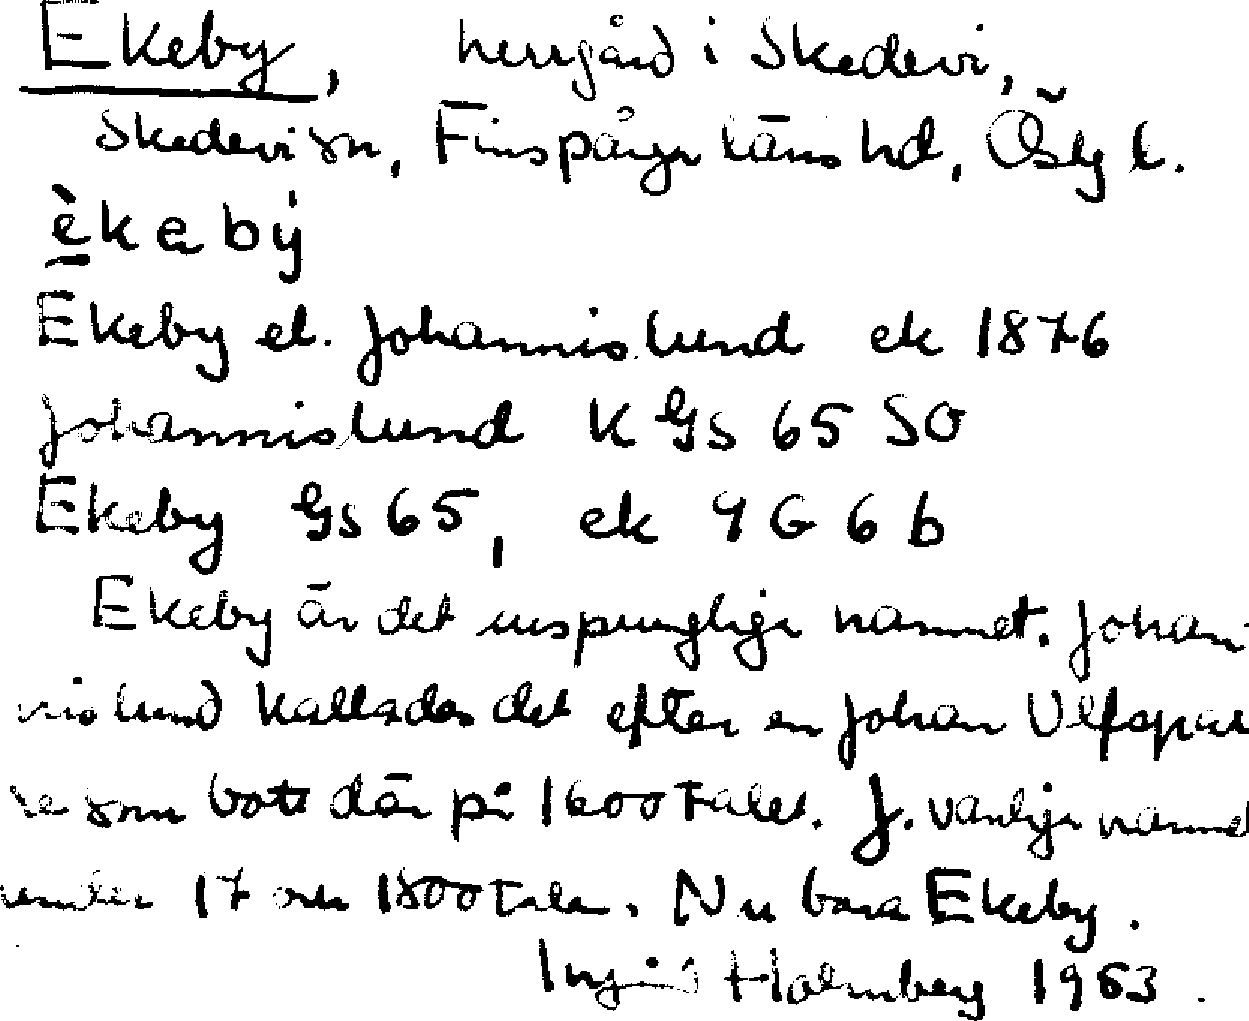 Ekeby, herrgård i Skedevi,
Skedevi sn, Finspånga läns hd, Östg l.
è̱kabý
Ekeby el. Johannislund ek 1876
Johannislund K Gs 65 SO
Ekeby Gs 65, ek 9G 6b
Ekeby är det ursprungliga namnet. Johan
nislund kallades det efter en Johan Ulfspar
re som bott där på 1600 talet. J. vanliga namnet
under 17 och 1800 talen. Nu bara Ekeby.
Ingrid Holmberg 1963.